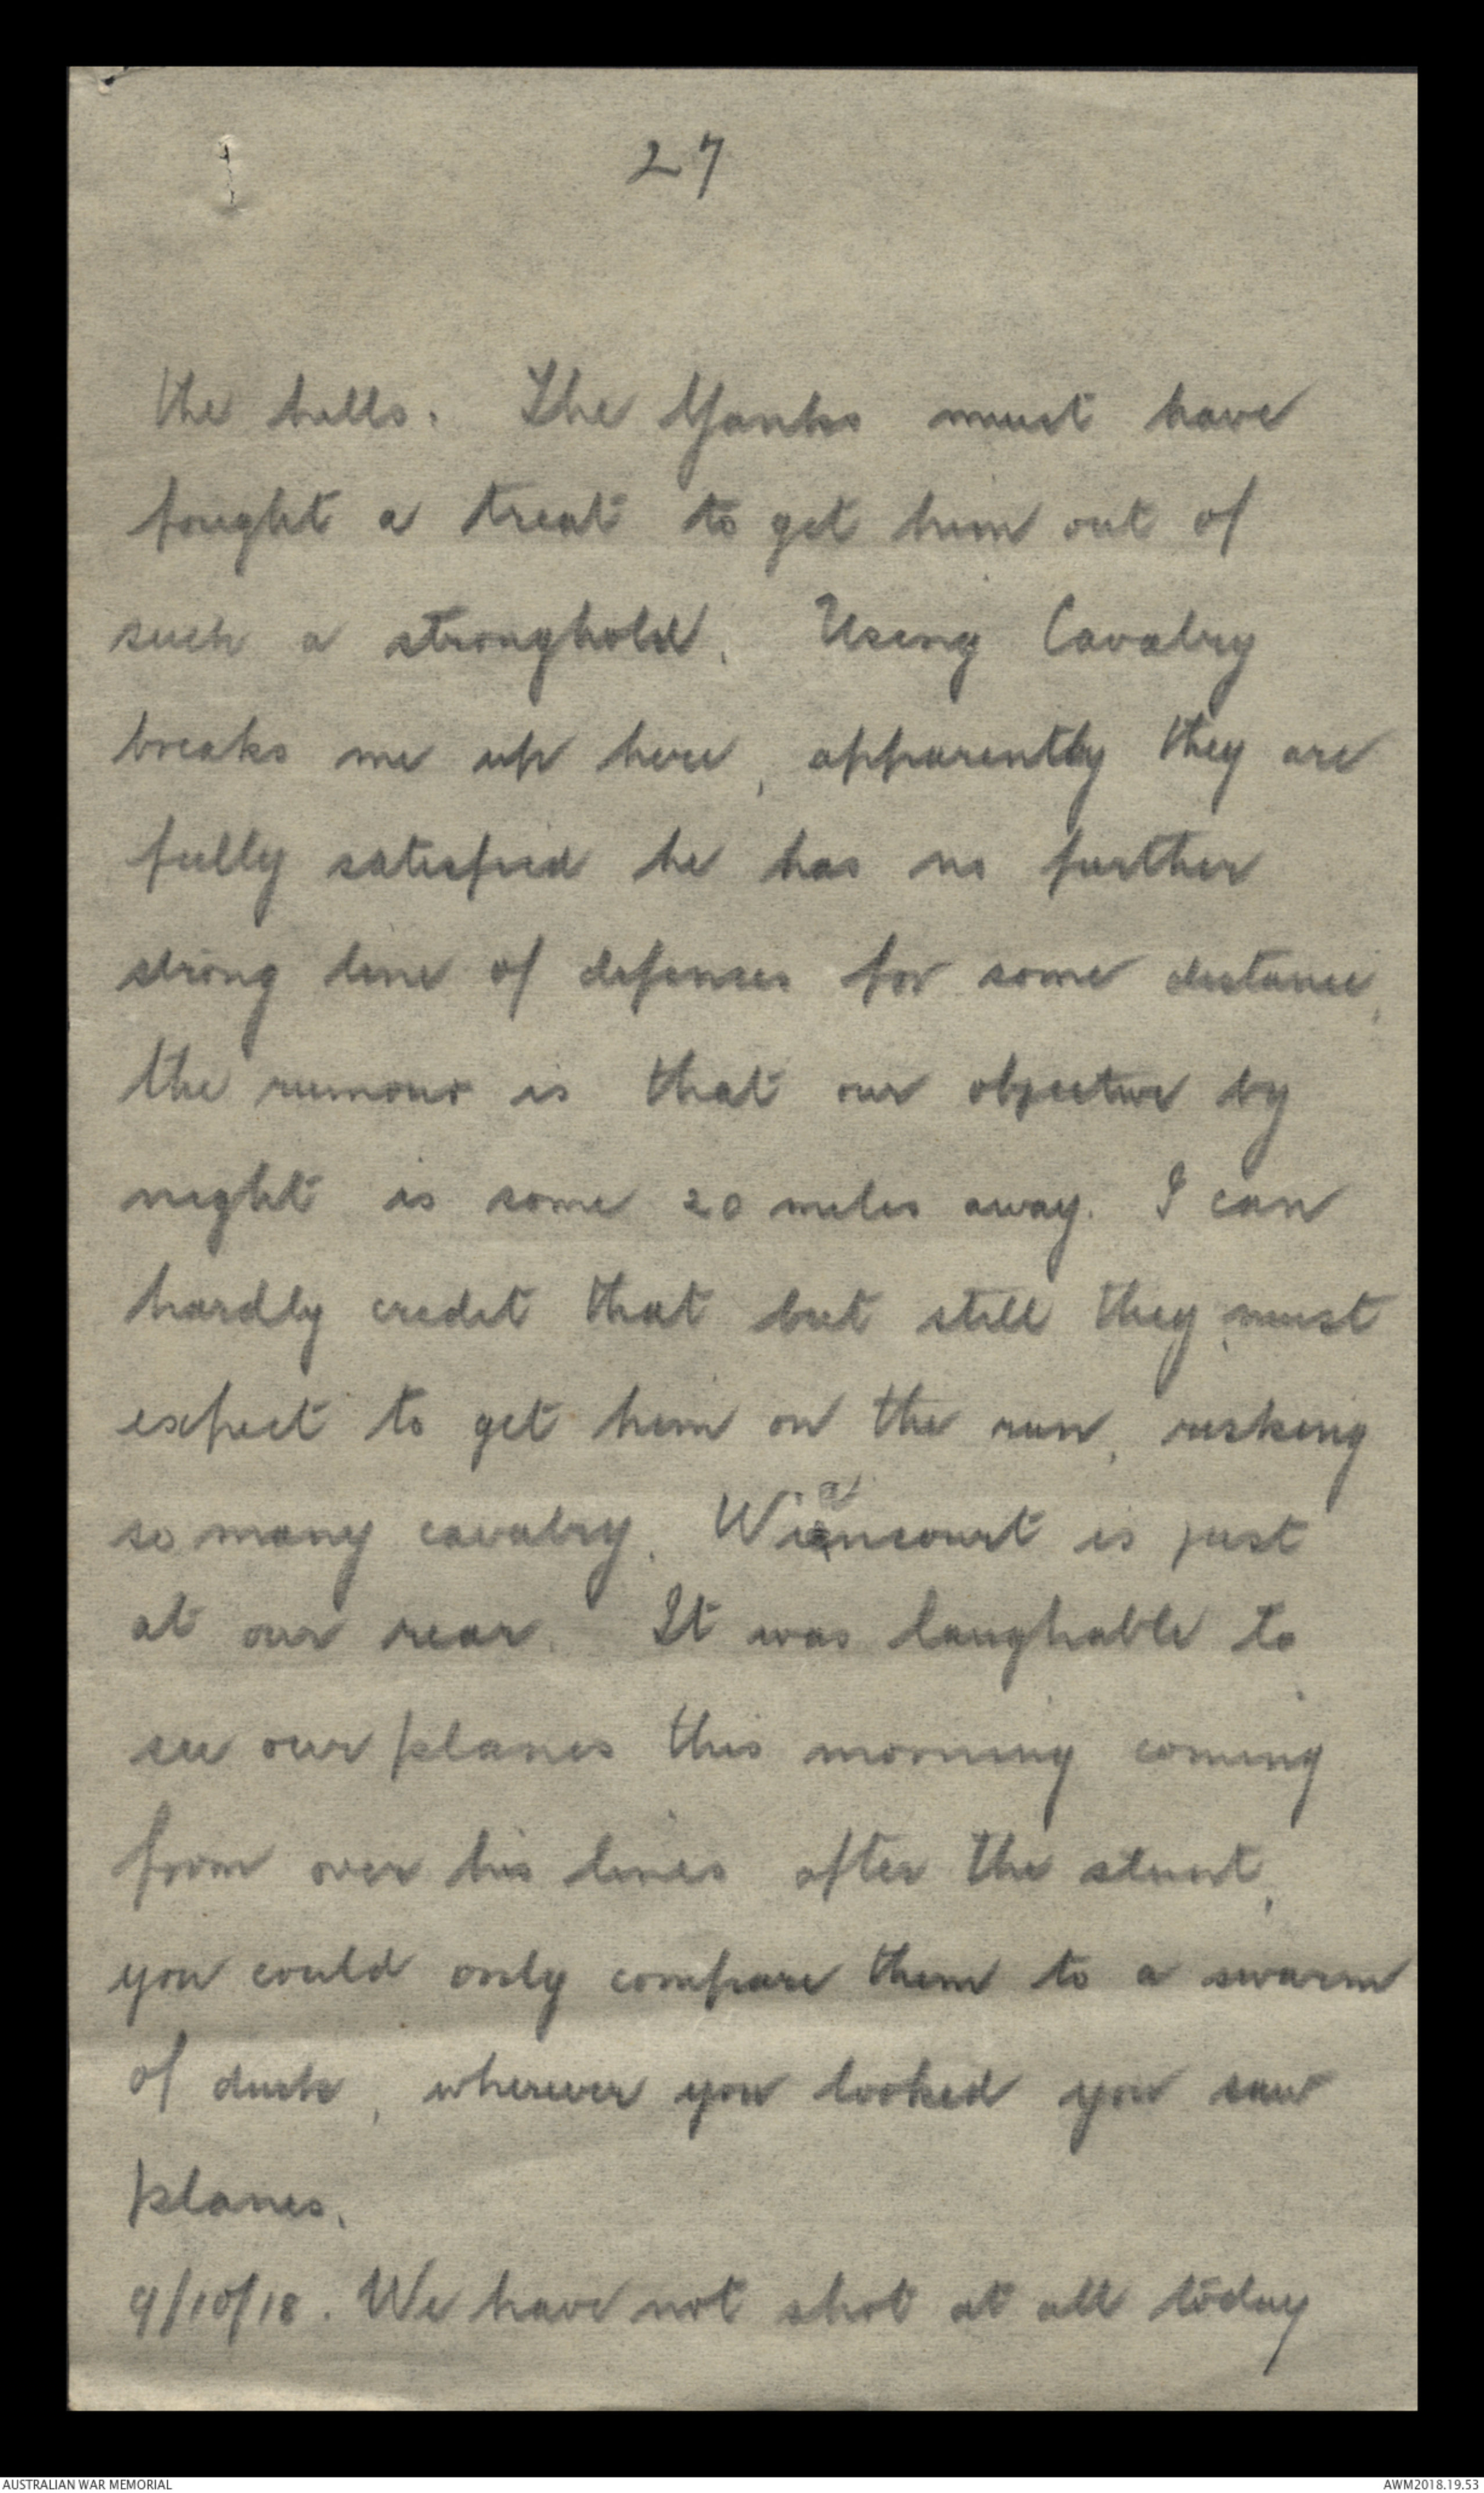 27
the hills. The Yanks must have
fought a treat to get him out of
such a stronghold. Using Cavalry
breaks me up here, apparently they are
fully satisfied he has no further
strong line of defences for some distance,
the rumour is that our objective by
night is some 20 miles away. I can
hardly credit that but still they must
expect to get him on the run, risking
so many cavalry. Wiancourt is just
at our rear. It was laughable to
see our planes this morning coming
from over his lines after the stunt,
you could only compare them to a swarm
of duck, wherever you looked you saw
planes.
9/10/18. We have not shot at all today
AUSTRALIAN WAR MEMORIAL
AWM2018.19.53